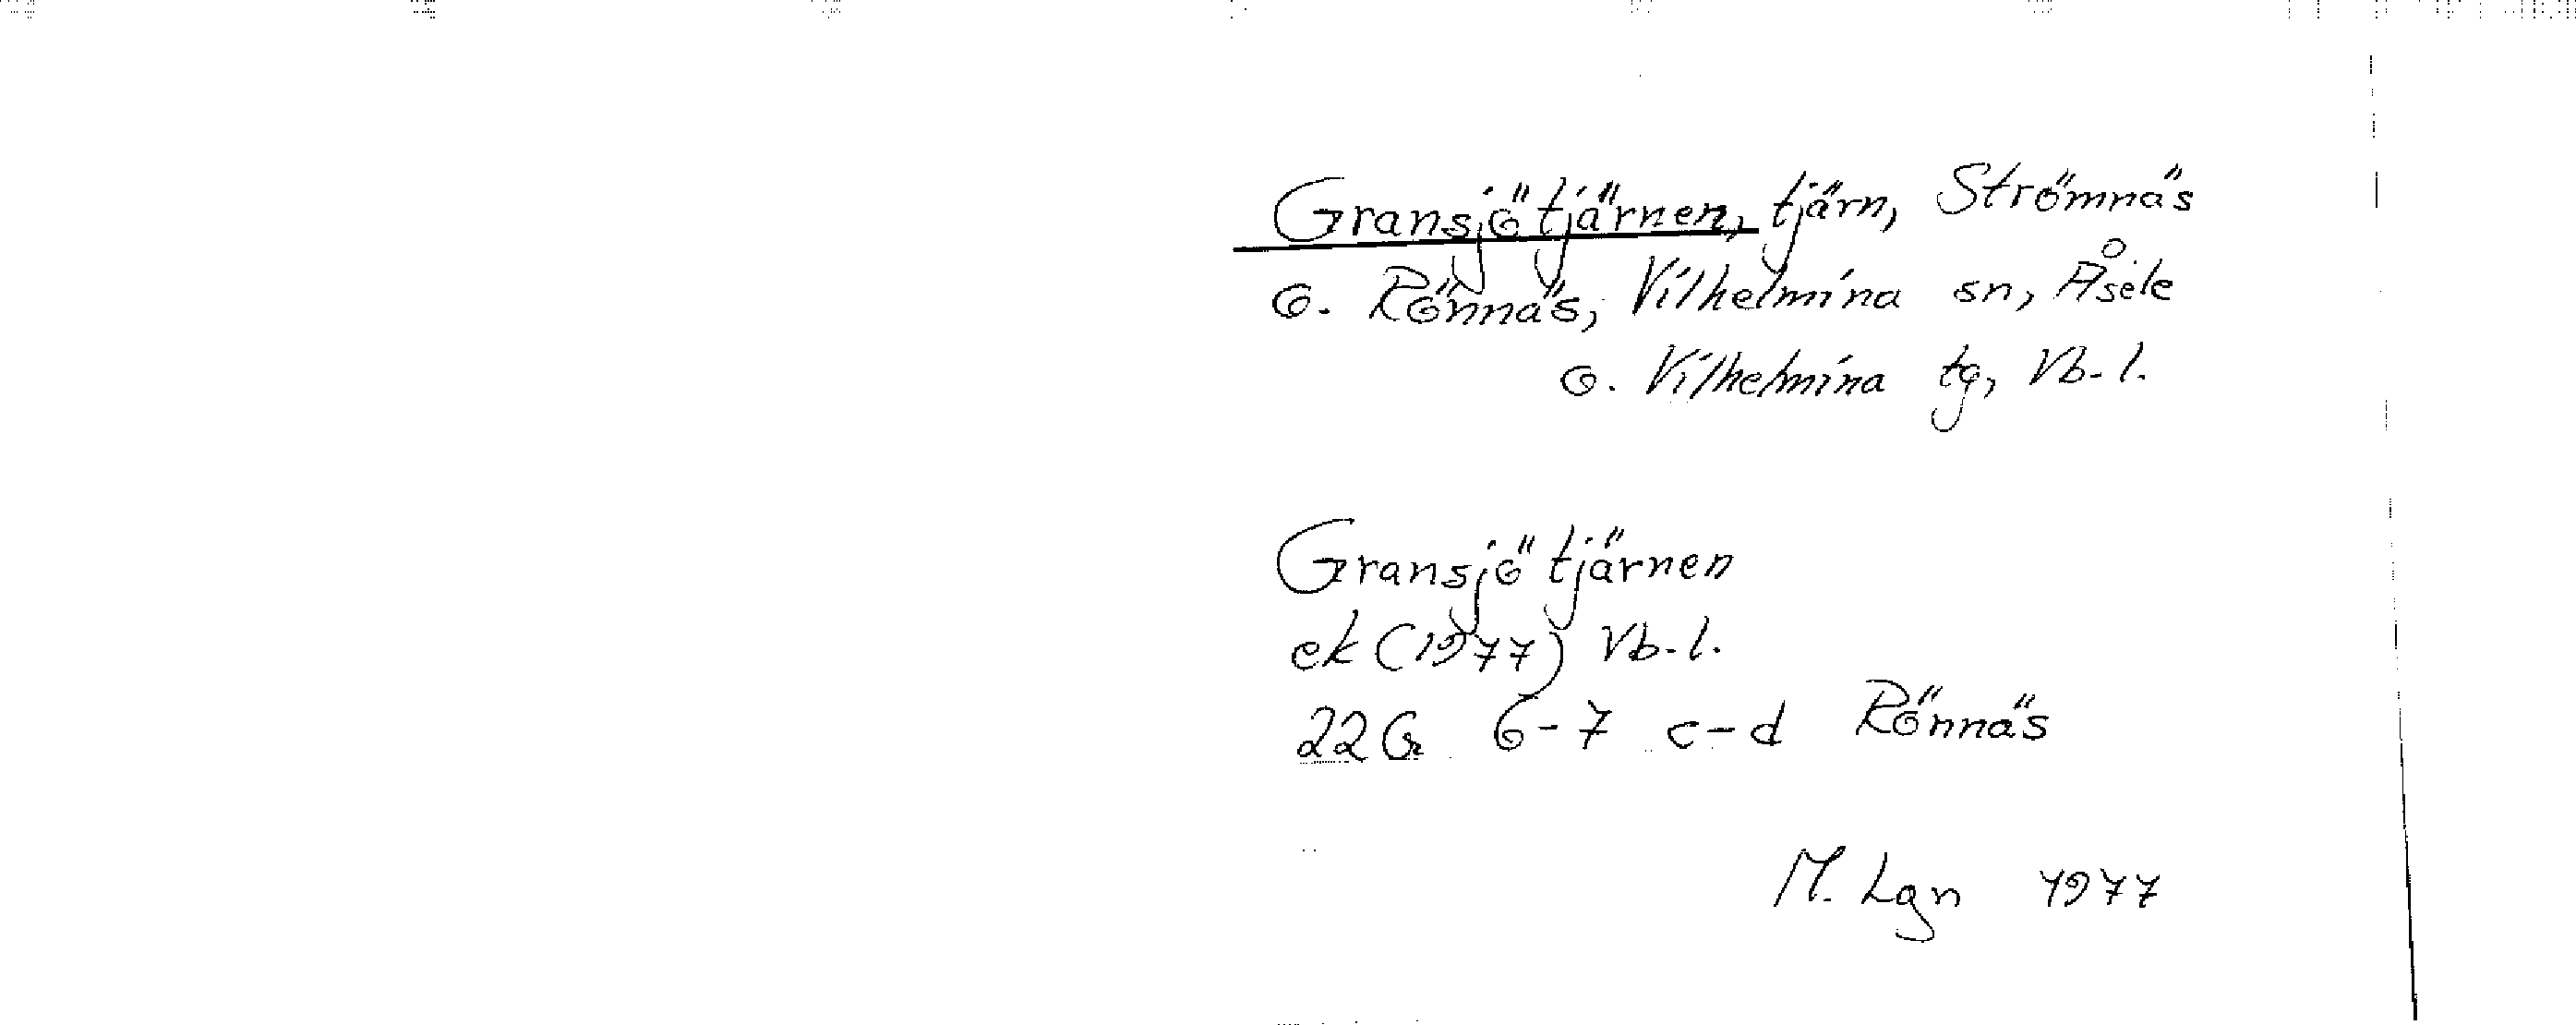 Gransjötjärnen, tjärn, Strömnäs
o. Rönnäs, Vilhelmina sn, Åsele
o. Vilhelmina tg, Vb-l.
Gransjötjärnen
ek (1977) Vb-l.
22G 6-7 c-d Rönnäs
M. Lgn 1977